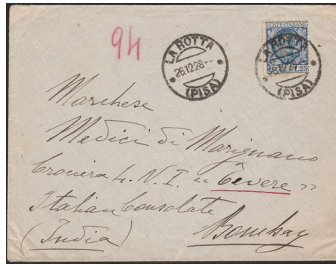 94
LA ROTTA
26.12.28
(PISA)
POSTE ITALIANE
LA ROTTA
(PISA)
Marchese
Medici di Marignano
Crociera L. N. I. "Tevere"
Italian Consolate
(India)
Bombay